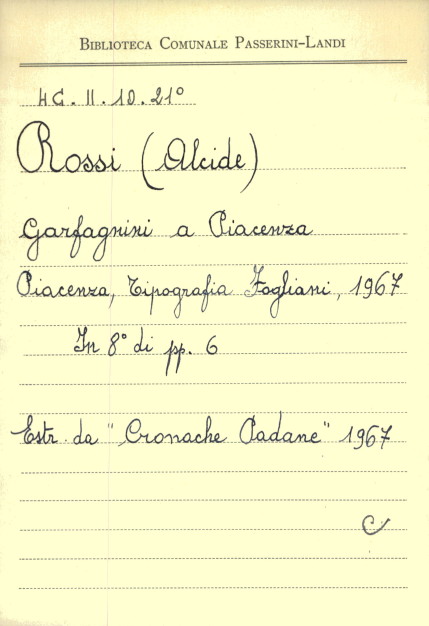 BIBLIOTECA COMUNALE PASSERINI-LANDI
4C.II.10.21°
Rossi (Alcide)
Garfagnini a Piacenza
Piacenza, Tipografia Fogliani, 1967
In 8° di pp. 6
Estr. da "Cronache Padane" 1967
C